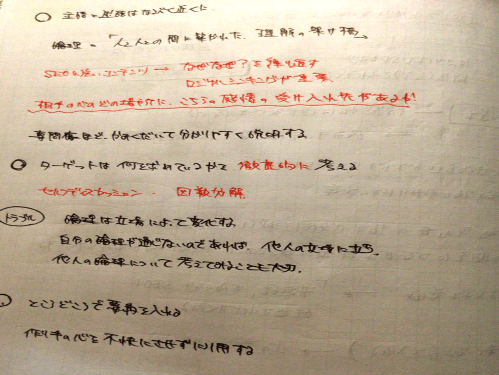 主語と述語はなるべく近くに
論理 = 「人と人との間に築かれた、理解の架け橋」
SEOも強いコンテンツ → なぜなぜ？を繰り返す
ロジカルシンキングが重要
相手の心のどの場所に、こちらの感情の受け入れ先があるか!
専門用語など、かみくだいて分かりやすく説明する
ターゲットは何を求めているかを徹底的に考える
セルフディスカッション 因数分解
トラブル 論理は立場によって変化する
自分の論理が通じないのであれば、他人の立場に立ち、
他人の論理について考えてみることも大切。
ところどころで要約を入れる
作り手の心を不快にさせずに引用する